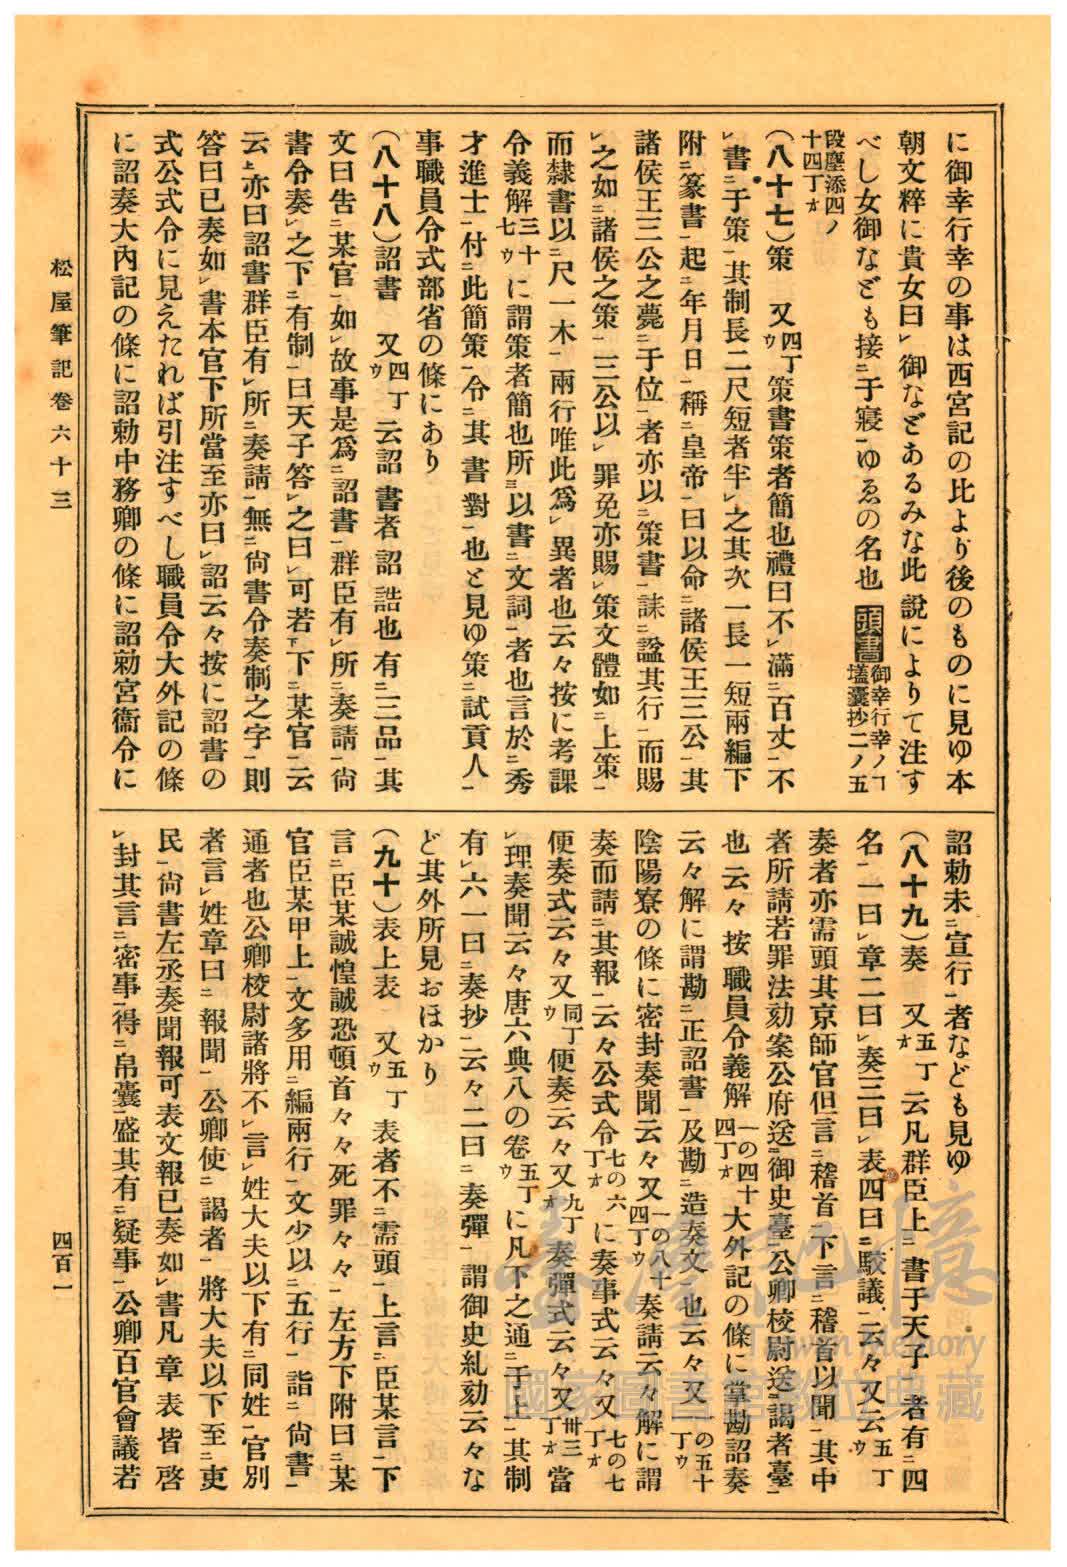 に御幸行幸の事は西宮記の比より後のものに見ゆ本
朝文粹に貴女曰㆑御などあるみな此說によりて注す
べし女御なども接㆓于寢㆒ゆゑの名也 頭書 御幸行幸ノヿ壒囊抄二ノ五
段塵添四ノ十四丁オ
(八十七)策 又四丁ウ策書策者簡也禮曰不㆑滿㆓百丈㆒不
㆑書㆓于策㆒其制長二尺短者半㆑之其次一長一短兩編下
附㆓篆書㆒起㆓年月日㆒稱㆓皇帝㆒曰以命㆓諸侯王三公㆒其
諸侯王三公之薨㆓于位㆒者亦以㆓策書㆒誄㆓謚其行㆒而賜
㆑之如㆓諸侯之策㆒三公以㆑罪免亦賜㆑策文體如㆓上策㆒
而隸書以㆓尺一木㆒兩行唯此爲㆑異者也云々按に考課
令義解三十七ウに謂策者簡也所㆔以書㆓文詞㆒者也言於㆓秀
才進士㆒付㆓此簡策㆒令㆓其書對㆒也と見ゆ策㆓試貢人㆒
事職員令式部省の條にあり
(八十八)詔書 又四丁ウ云詔書者詔誥也有㆓三品㆒其
文曰吿㆓某官㆒如㆑故事是爲㆓詔書㆒群臣有㆑所㆓奏請㆒尙
書令奏㆑之下㆓有制㆒曰天子答㆑之曰㆑可若㆘下㆓某官㆒云
云㆖亦曰詔書群臣有㆑所㆓奏請㆒無㆓尙書令奏制之字㆒則
答曰已奏如㆑書本官下所當至亦曰㆑詔云々按に詔書の
式公式令に見えたれば引注すべし職員令大外記の條
に詔奏大內記の條に詔勅中務卿の條に詔勅宮衞令に
詔勅未㆓宣行㆒者なども見ゆ
(八十九)奏 又五丁オ云凡群臣上㆓書于天子㆒者有㆓四
名㆒一曰㆑章二曰㆑奏三曰㆑表四曰㆓駮議㆒云々又云五丁ウ
奏者亦需頭其京師官但言㆓稽首㆒下言㆓稽首以聞㆒其中
者所請若罪法劾案公府送㆓御史臺㆒公卿校尉送㆓謁者臺㆒
也云々按職員令義解一の四十四丁オ大外記の條に掌勘詔奏
云々解に謂勘㆓正詔書㆒及勘㆓造奏文㆒也云々又一の五十一丁ウ
陰陽寮の條に密封奏聞云々又一の八十四丁ウ奏請云々解に謂
奏而請㆓其報㆒云々公式令七の六丁オに奏事式云々又七の七丁オ
便奏式云々又同丁ウ便奏云々又九丁オ奏彈式云々又卅三丁オ當
㆑理奏聞云々唐六典八の卷五丁ウに凡下之通㆓于上㆒其制
有㆑六一曰㆓奏抄㆒云々二曰㆓奏彈㆒謂御史糺劾云々な
ど其外所見おほかり
(九十)表上表 又五丁ウ表者不㆓需頭㆒上言㆓臣某言㆒下
言㆓臣某誠惶誠恐頓首々々死罪々々㆒左方下附曰㆓某
官臣某甲上㆒文多用㆓編兩行㆒文少以㆓五行㆒詣㆓尙書㆒
通者也公卿校尉諸將不㆑言㆑姓大夫以下有㆓同姓㆒官別
者言㆑姓章曰㆓報聞㆒公卿使㆓謁者㆒將大夫以下至㆓吏
民㆒尙書左丞奏聞報可表文報已奏如㆑書凡章表皆啓
㆑封其言㆓密事㆒得㆓帛囊㆒盛其有㆓疑事㆒公卿百官會議若
松屋筆記卷六十三
四百一
臺灣記憶
Taiwan Memory
國家圖書館數位典藏